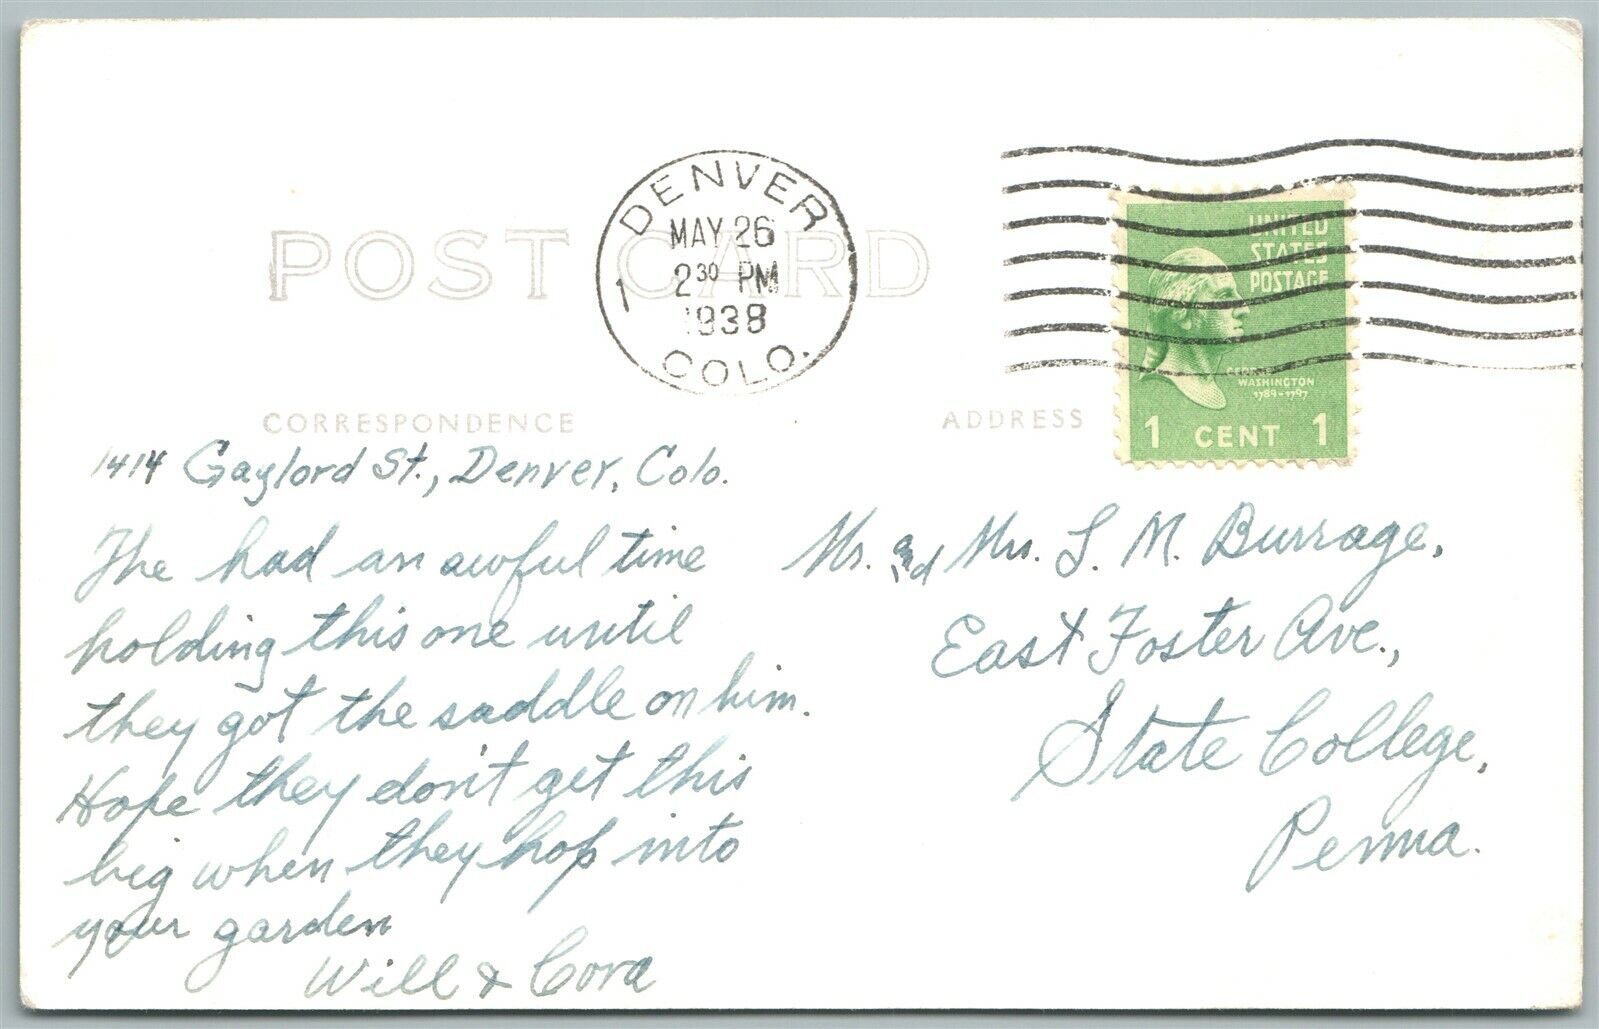 POST CARD
DENVER
MAY 26
2 30 PM
1938
COLO.
1
UNITED
STATES
POSTAGE
GEORGE
WASHINGTON
1789-1797
1 CENT 1
CORRESPONDENCE
ADDRESS
1414 Gaylord St., Denver, Colo.
The had an awful time
holding this one until
they got the saddle on him.
Hope they don't get this
big when they hop into
your garden
Will & Cora
Mr. and Mrs. L. M. Burrage,
East Foster Ave.,
State College,
Penna.